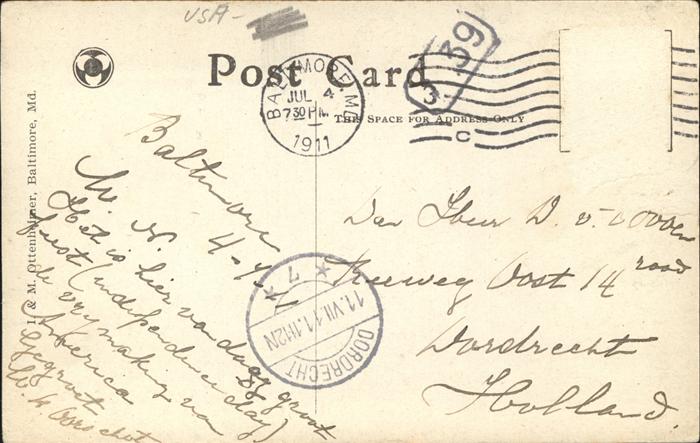 USA-
Post Card
39
3
BALTIMORE, MD.
JUL 4
7 30 PM
1911
C
THIS SPACE FOR ADDRESS ONLY
I. & M. Ottenheimer, Baltimore, Md.
Baltimore
4-7-11
M. N.
Het is hier vandaag groot
feest (independence day)
de vrymaking van
America
Gegroet
W. v. Oorschot
Den Heer D. v.
Oost 14 rood
Dordrecht
Holland.
DORDRECHT
11.VII.11.1112N
* 7 *